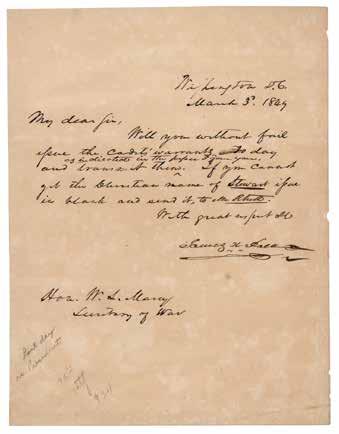 Washington D.C.
March 3d. 1849
My dear Sir,
Will you without fail
issue the Cadets' warrants to day
as indicated in the paper I gave you
and transmit them. If you cannot
get the Christian name of Stewart issue
in blank and send it, to Mr
With great respect
Hon. W. L. Marcy
Secretary of War
Last day
as President